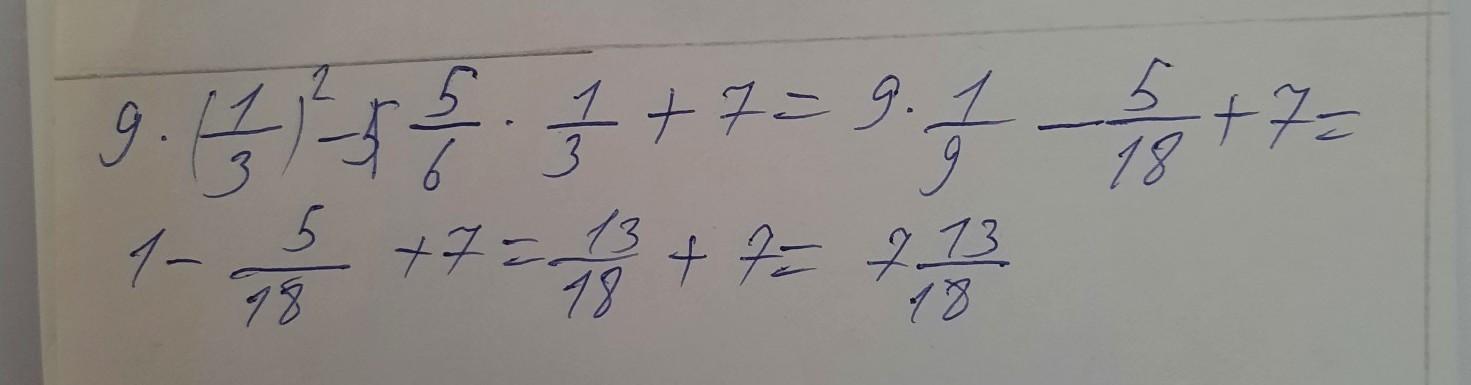 9 · (1/3)² - 5/6 · 1/3 + 7 = 9 · 1/9 - 5/18 + 7 =
1 - 5/18 + 7 = 13/18 + 7 = 7 13/18